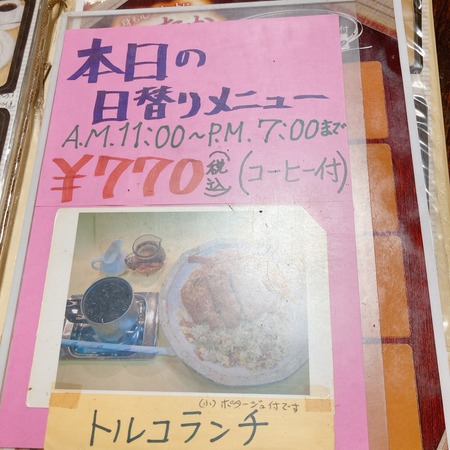 本日の
日替りメニュー
A.M.11:00～P.M.7:00まで
￥770(税込)(コーヒー付)
(小)ポタージュ付です
トルコランチ